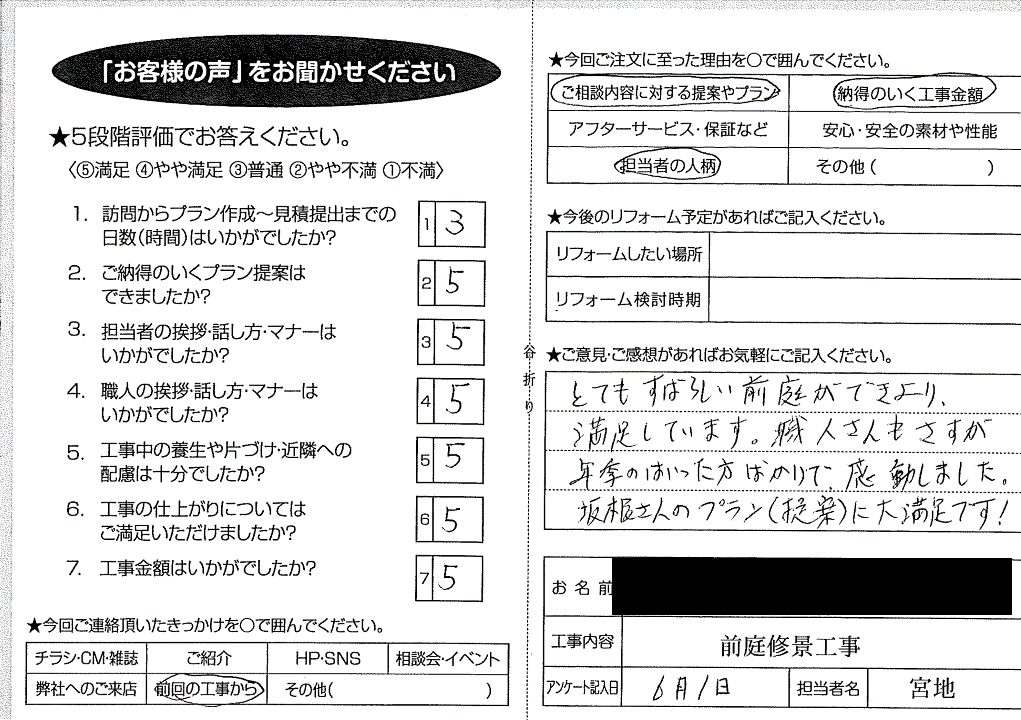 「お客様の声」をお聞かせください
★5段階評価でお答えください。
〈⑤満足 ④やや満足 ③普通 ②やや不満 ①不満〉
1. 訪問からプラン作成～見積提出までの
日数(時間)はいかがでしたか?
1 3
2. ご納得のいくプラン提案は
できましたか?
2 5
3. 担当者の挨拶・話し方・マナーは
いかがでしたか?
3 5
4. 職人の挨拶・話し方・マナーは
いかがでしたか?
4 5
5. 工事中の養生や片づけ・近隣への
配慮は十分でしたか?
5 5
6. 工事の仕上がりについては
ご満足いただけましたか?
6 5
7. 工事金額はいかがでしたか?
7 5
★今回ご連絡頂いたきっかけを○で囲んでください。
チラシ・CM・雑誌 ご紹介 HP・SNS 相談会・イベント
弊社へのご来店 前回の工事から その他( )
谷折り
★今回ご注文に至った理由を○で囲んでください。
ご相談内容に対する提案やプラン 納得のいく工事金額
アフターサービス・保証など 安心・安全の素材や性能
担当者の人柄 その他( )
★今後のリフォーム予定があればご記入ください。
リフォームしたい場所
リフォーム検討時期
★ご意見・ご感想があればお気軽にご記入ください。
とても すばらしい前庭ができより、
満足しています。職人さんもさすが
年季のはいった方ばかりで、感動しました。
坂根さんのプラン(提案)に大満足です!
お名前
工事内容 前庭修景工事
アンケート記入日 6月1日 担当者名 宮地